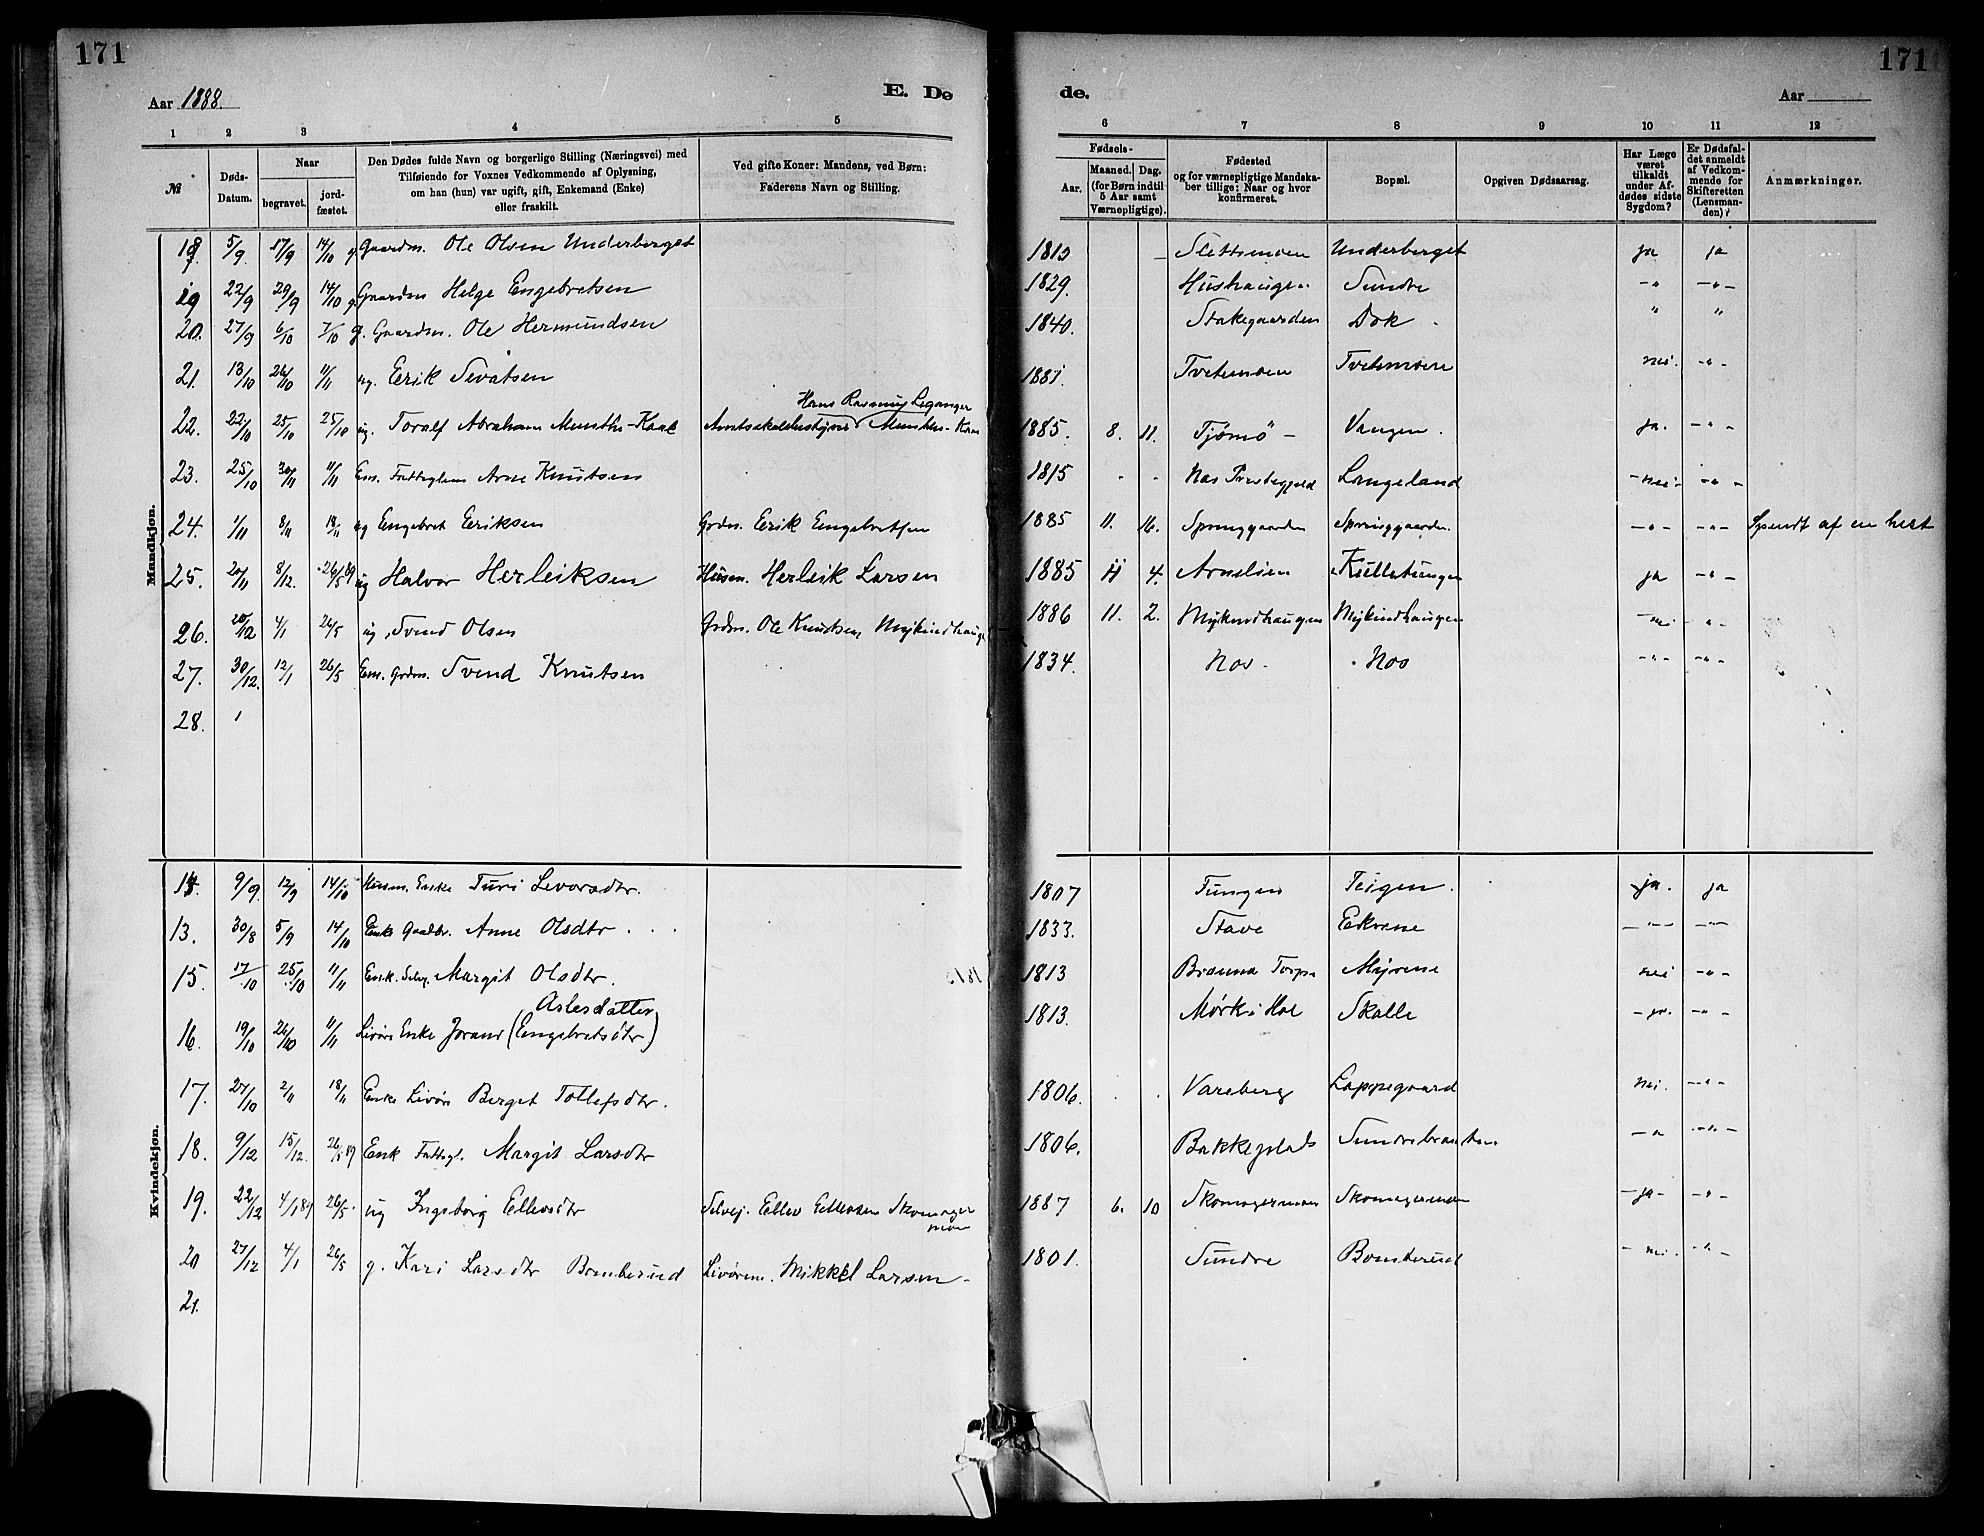 171
171
Aar 1888.
E. De
de.
Aar
1 2 3 4 5 6 7 8 9 10 11 12
№
Døds-
Datum.
Naar
begravet.
jord-
fæstet.
Den Dødes fulde Navn og borgerlige Stilling (Næringsvei) med
Tilføiende for Voxnes Vedkommende af Oplysning,
om han (hun) var ugift, gift, Enkemand (Enke)
eller fraskilt.
Ved gifte Koner: Mandens, ved Børn:
Faderens Navn og Stilling.
Fødsels-
Aar.
Maaned. Dag.
(for Børn indtil
5 Aar samt
Værnepligtige).
Fødested
og for værnepligtige Mandska-
ber tillige: Naar og hvor
konfirmeret.
Bopæl.
Opgiven Dødsaarsag.
Har Læge
været
tilkaldt
under Af-
dødes sidste
Sygdom?
Er Dødsfal-
det anmeldt
af Vedkom-
mende for
Skifteretten
(Lensman-
den)?
Anmærkninger.
Mandkjøn.
18 5/9. 17/9 14/10 g Gaardm. Ole Olsen Underberget 1810 Slettemoen Underberget ja ja
19 22/9 29/9 14/10 g Gaardm Helge Engebretsen 1829. Hushaugen Sundre -"- -"-
20. 27/9 6/10 7/10 g. Gaardm. Ole Hermundsen 1840. Stakegaarden Dok " "
21. 13/10 26/10 11/11 ug. Erik Sevatsen 1881. Tvetemoen Tvetemoen nei -"-
Hans Rasmus Leganger
22. 22/10 25/10 25/10 ug. Toralf Abrahann Munthe-Kaas Amtsskolebestyrer Munthe-Kaas 1885. 8. 11. Tjømø - Vangen. ja. -"-
23. 25/10 30/11 11/11 Em. Fattiglem Arne Knutsen 1815 Nas Præstegjeld Langeland -nei- -"-
24. 1/11 8/11 18/11 ug Engebret Eriksen Grdm. Erik Engebretsen 1885 11. 16. Spranggaarden Spranggaarden -"- -"- Spendt af en hest
25. 20/11 8/12. 26/5 89 ug Halvor Herleiksen Husm. Herleik Larsen 1885 4. Arnelien Kulleteigen ja -"-
26. 20/12 4/1 26/5 ug. Svend Olsen Grdm. Ole Knutsen Mykindhaug 1886 11. 2. Mykindhaugen Mykindhaugen -nei -"-
27. 30/12. 12/1 26/5 Em. Grdm. Svend Knutsen 1834. Nos - Nos -"- -"-
28.
Kvindekjøn.
14. 9/9. 12/9 14/10 Husm. Enke Turi Levorsdtr. 1807 Tungen Teigen. ja. ja
13. 30/8 5/9 14/10 Enke Gaardbr. Anne Olsdtr 1833. Stave Ekrene -"- -"-
15. 17/10 25/10 11/11 Enk. Selvej. Margit Olsdtr. 1813 Torpe Myrene nei -"-
Aslesdatter
16. 19/10 26/10 11/11 Livørs Enke Jorand (Engebretsdtr) 1813. Mørk i Hol Skolle -ja- -"-
17. 27/10 2/11 18/11 Enke Livørs Berget Tollefsdtr. 1806. Vareberg Lappegaard nei. -"-
18. 9/12 15/12. 26/5 89 Enk Fattigl. Margit Larsdtr 1806. Bakkeplads Sundrebraaten -" -"-
19. 22/12 4/1 89 26/5. ug Ingeborg Ellevsdtr Selvej. Ellev Ellevsen Skomager
moen
1887 6. 10 Skomagermoen Skomagermoen -ja- -"-
20 27/12 4/1 26/5 g. Kari Larsdtr Bomberud Livørem. Mikkel Larsen - 1801. Sundre Bomberud - nei. -"-
21.